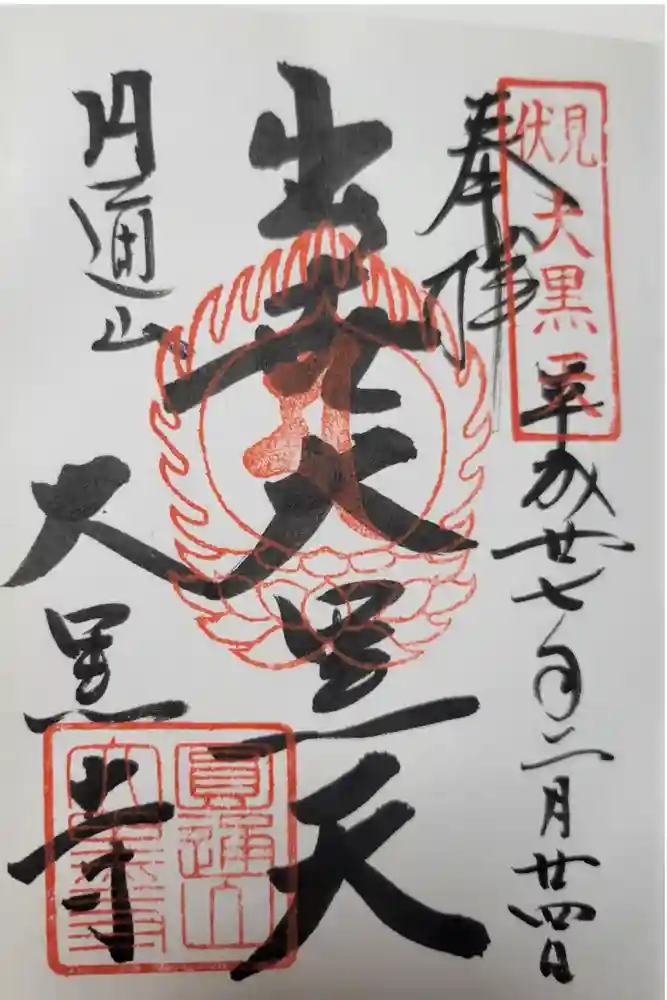 伏見
大黒天
奉拝
平成廿七年二月廿四日
出世大黒天
円通山
大黒寺
圓通山
大黒寺